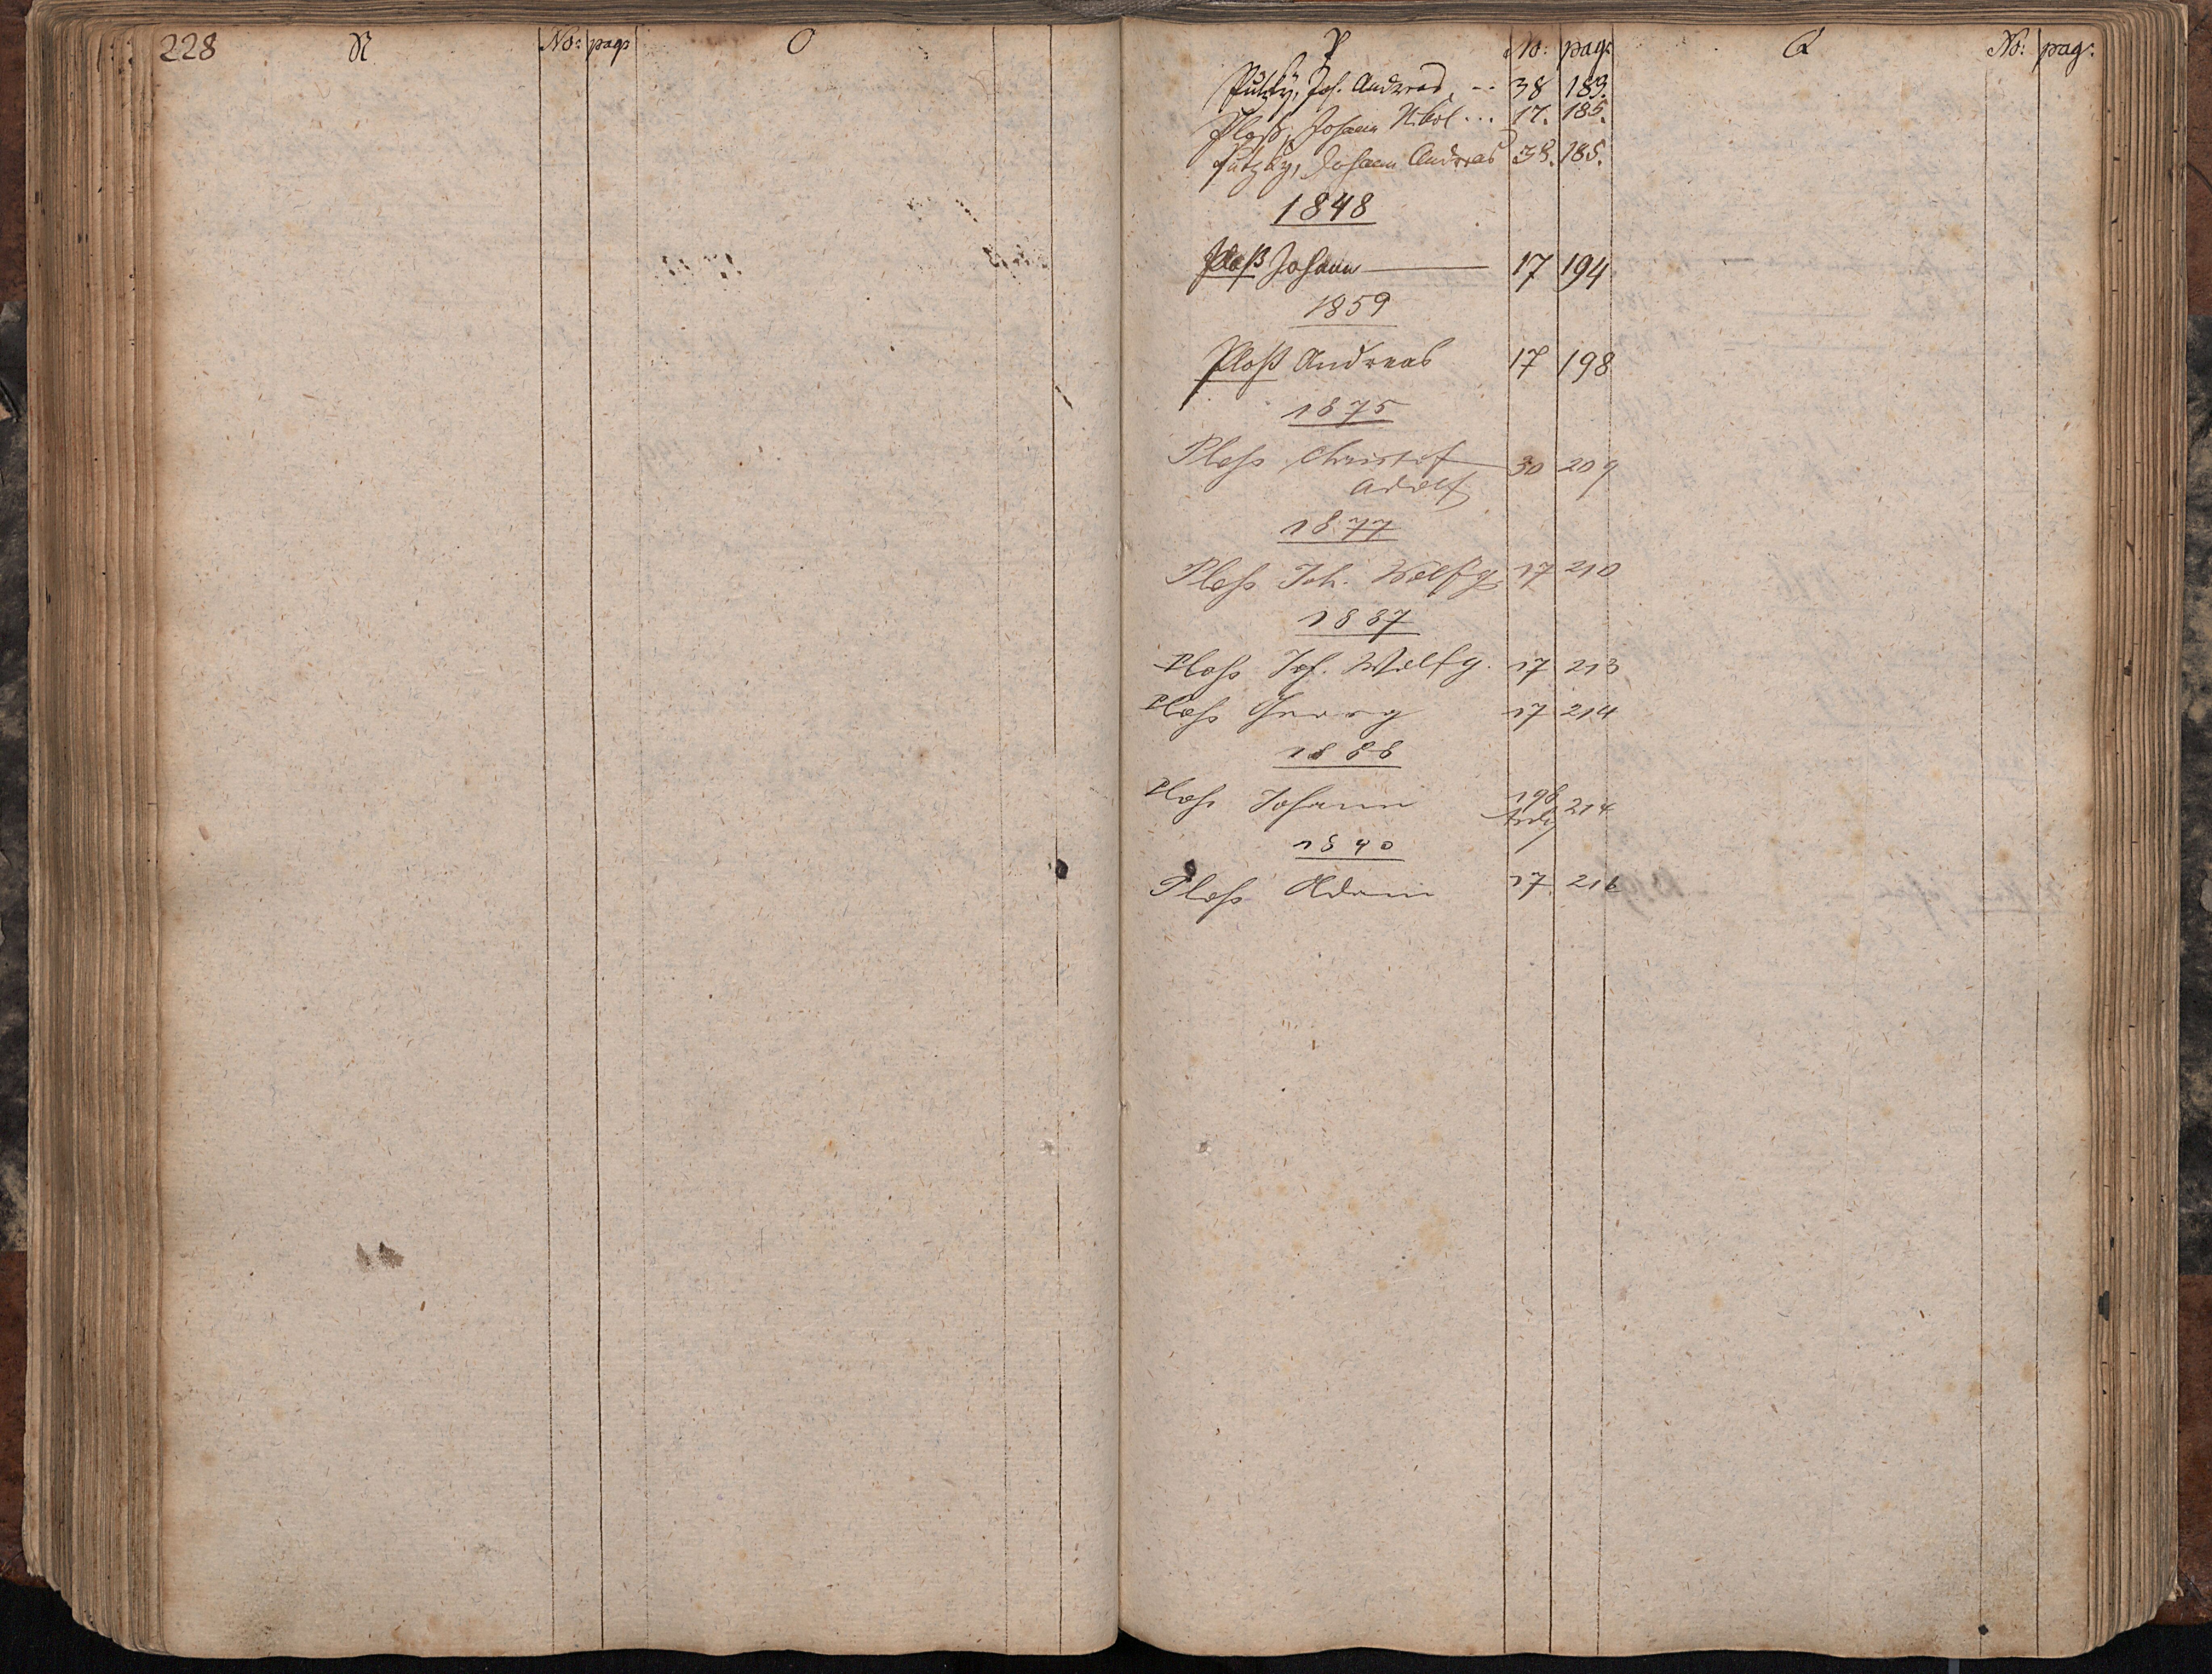 228 N No: pag: O
P No: pag: Q No: pag:
Putzky, Joh. Andreas, -- 38 189.
Ploß, Johann Nikol ... 17. 185.
Putzky, Johann Andreas 38. 185.
1848
Ploß Johann 17 194
1859
Ploß Andreas 17 198
1875
Ploß Christof 30 209
Adolf
1877
Ploß Joh. Wolfg. 17 210
1887
Ploß Joh. Wolfg. 17 213
Ploß Georg 17 214
1888
Ploß Johann 198 214
1890
Ploß Adam 17 216